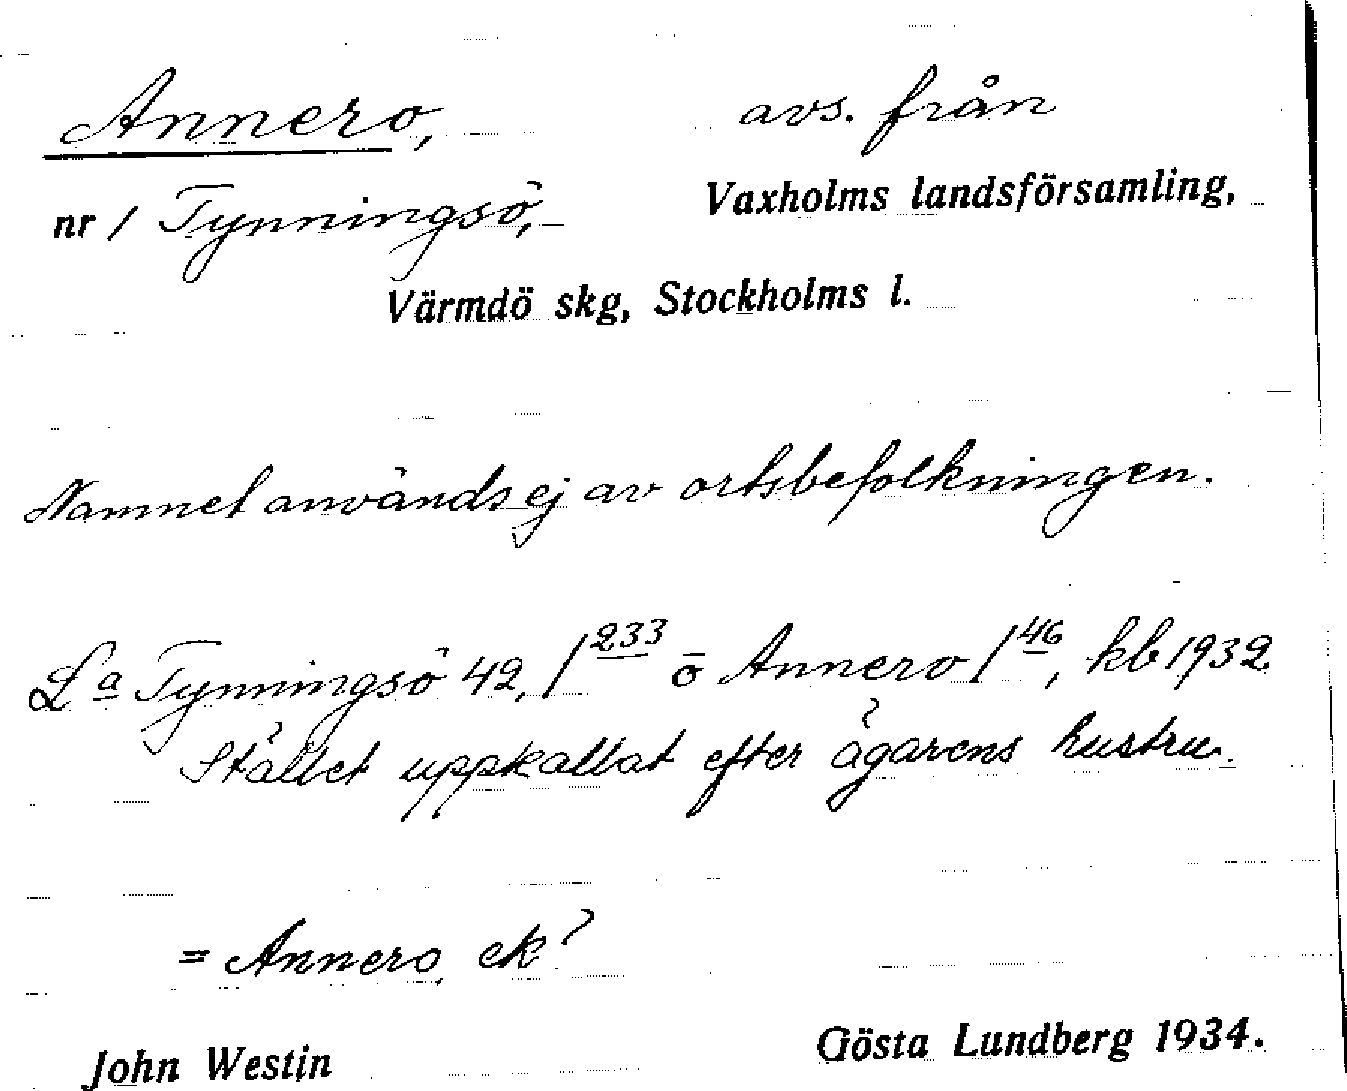 Annero, avs. från
nr 1 Tynningsö, Vaxholms landsförsamling,
Värmdö skg, Stockholms l.
Namnet används ej av ortsbefolkningen.
Lª Tynningsö 42, 1²³³ o Annero 1⁴⁶, kb 1932.
Stället uppkallat efter ägarens hustru.
= Annero, ek?
John Westin Gösta Lundberg 1934.